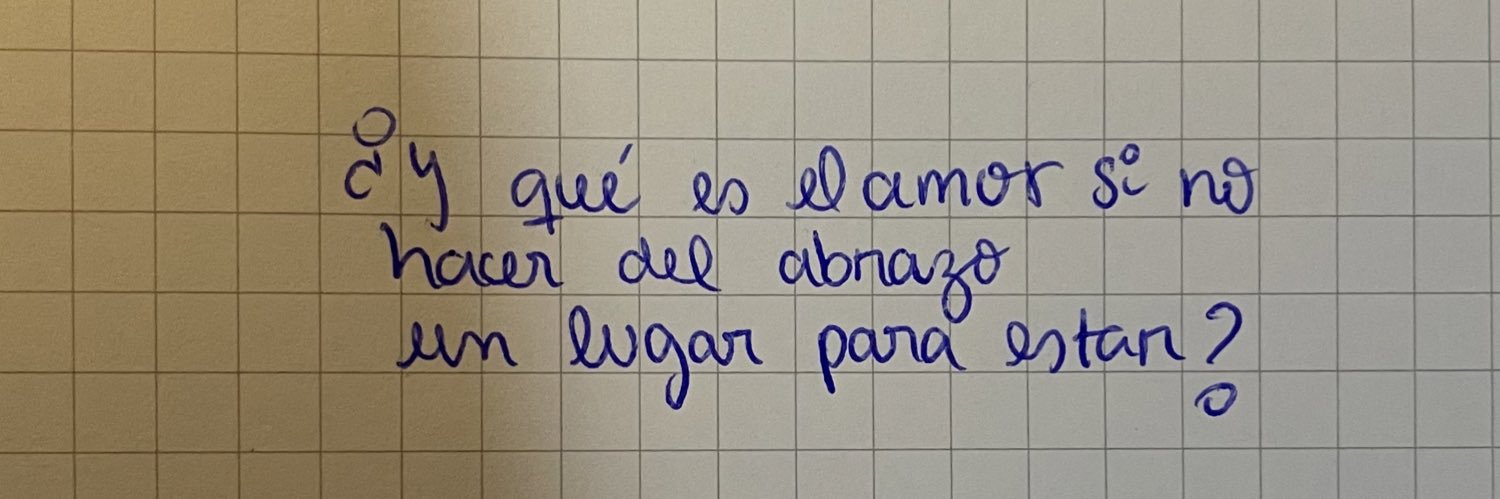 ¿Y qué es el amor si no
hacer del abrazo
un lugar para estar?